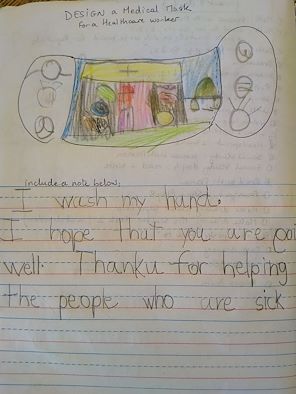 DESIGN a Medical Mask
For a Healthcare worker
include a note below:
I wash my hand.
I hope that you are goi
well. Thanku for helping
the people who are sick